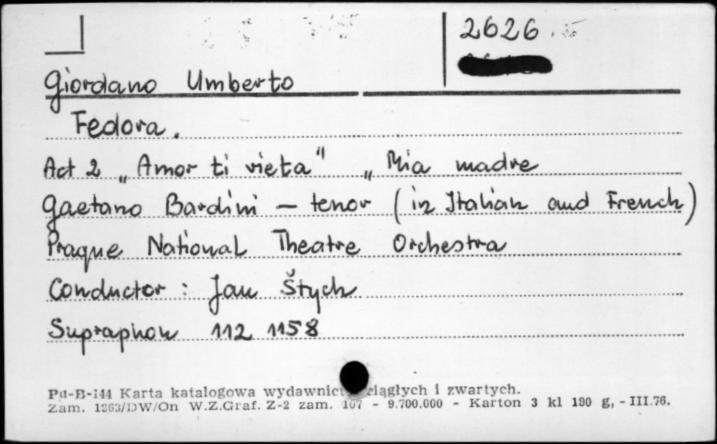 2626
Giordano Umberto
Fedora.
Act 2 „Amor ti vieta" „Mia madre
Gaetano Bardini – tenor (in Italian and French)
Prague National Theatre Orchestra
Conductor: Jan Štych
Supraphon 112 1158
Pu-B-144 Karta katalogowa wydawnictw ciągłych i zwartych.
Zam. 1263/DW/On W.Z.Graf. Z-2 zam. 107 - 9.700.000 - Karton 3 kl 180 g, - III.76.